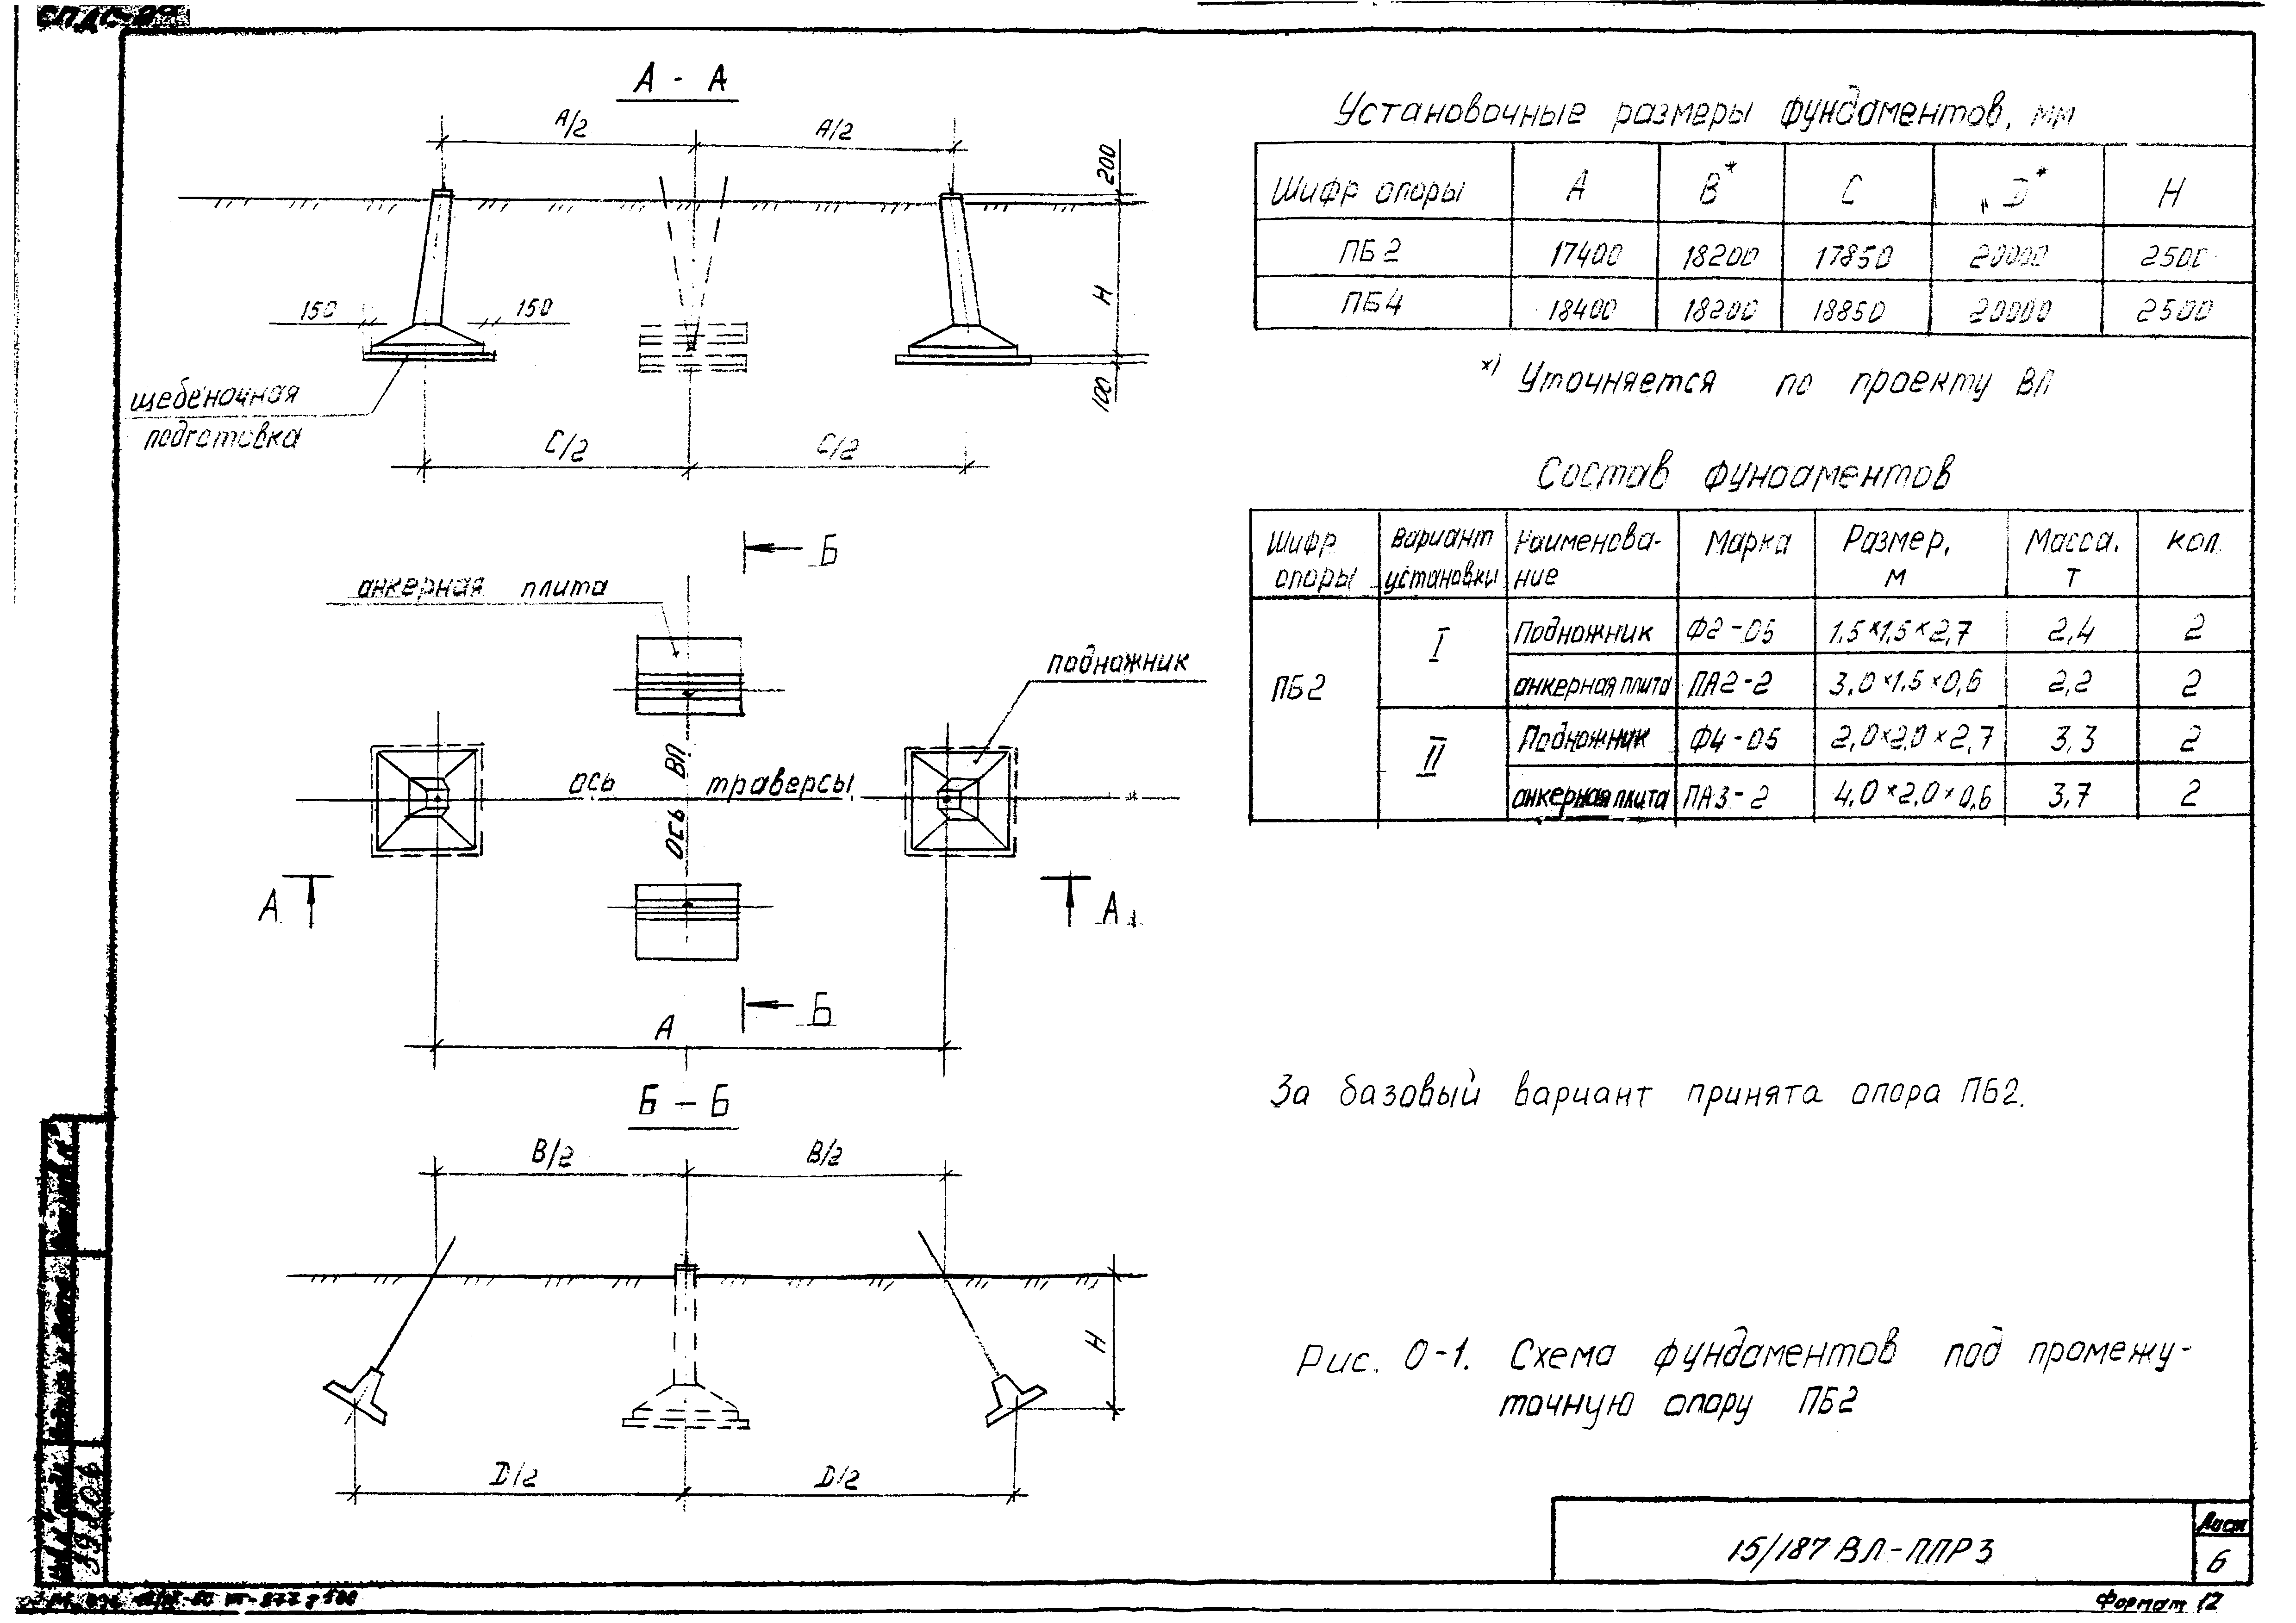 А - А
А/2 А/2
200
H
100
150 150
щебеночная
подготовка
С/2 С/2
Б
анкерная плита
подножник
ось ВЛ
ось траверсы
А А
Б
А
Б - Б
В/2 В/2
H
D/2 D/2
Установочные размеры фундаментов, мм
Шифр опоры А В* С D* Н
ПБ2 17400 18200 17850 20000 2500
ПБ4 18400 18200 18850 20000 2500
*) Уточняется по проекту ВЛ
Состав фундаментов
Шифр опоры Вариант установки Наименова-ние Марка Размер, м Масса, т кол.
ПБ2 I Подножник Ф2-05 1,5×1,5×2,7 2,4 2
анкерная плита ПА2-2 3,0×1,5×0,6 2,2 2
II Подножник Ф4-05 2,0×2,0×2,7 3,3 2
анкерная плита ПА3-2 4,0×2,0×0,6 3,7 2
За базовый вариант принята опора ПБ2.
Рис. 0-1. Схема фундаментов под промежу-
точную опору ПБ2
15/187 ВЛ-ППР3
Лист
6
Формат 12